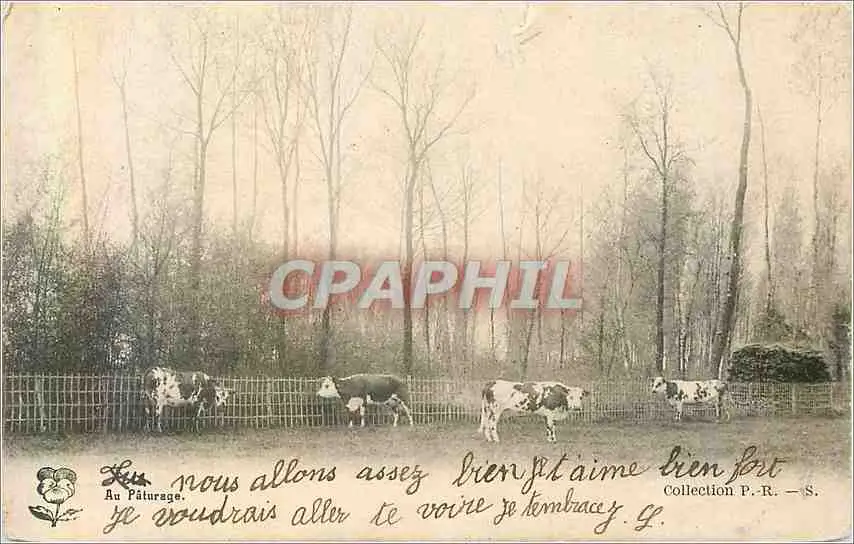 CPAPHIL
nous allons assez bien Je t'aime bien fort
Au Pâturage.
Collection P.-R. - S.
Je voudrais aller te voire Je tembrace